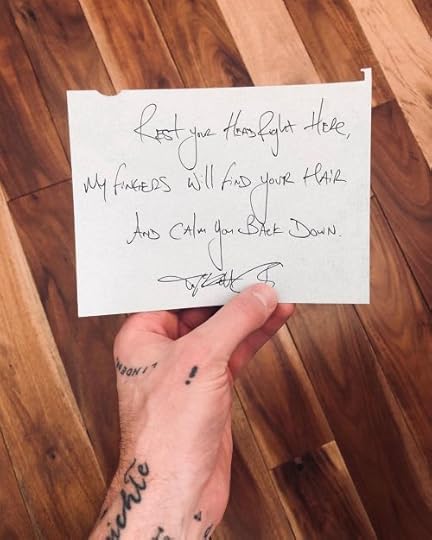 Rest your Head Right Here,
My fingers will find your Hair
And calm you Back Down.
!